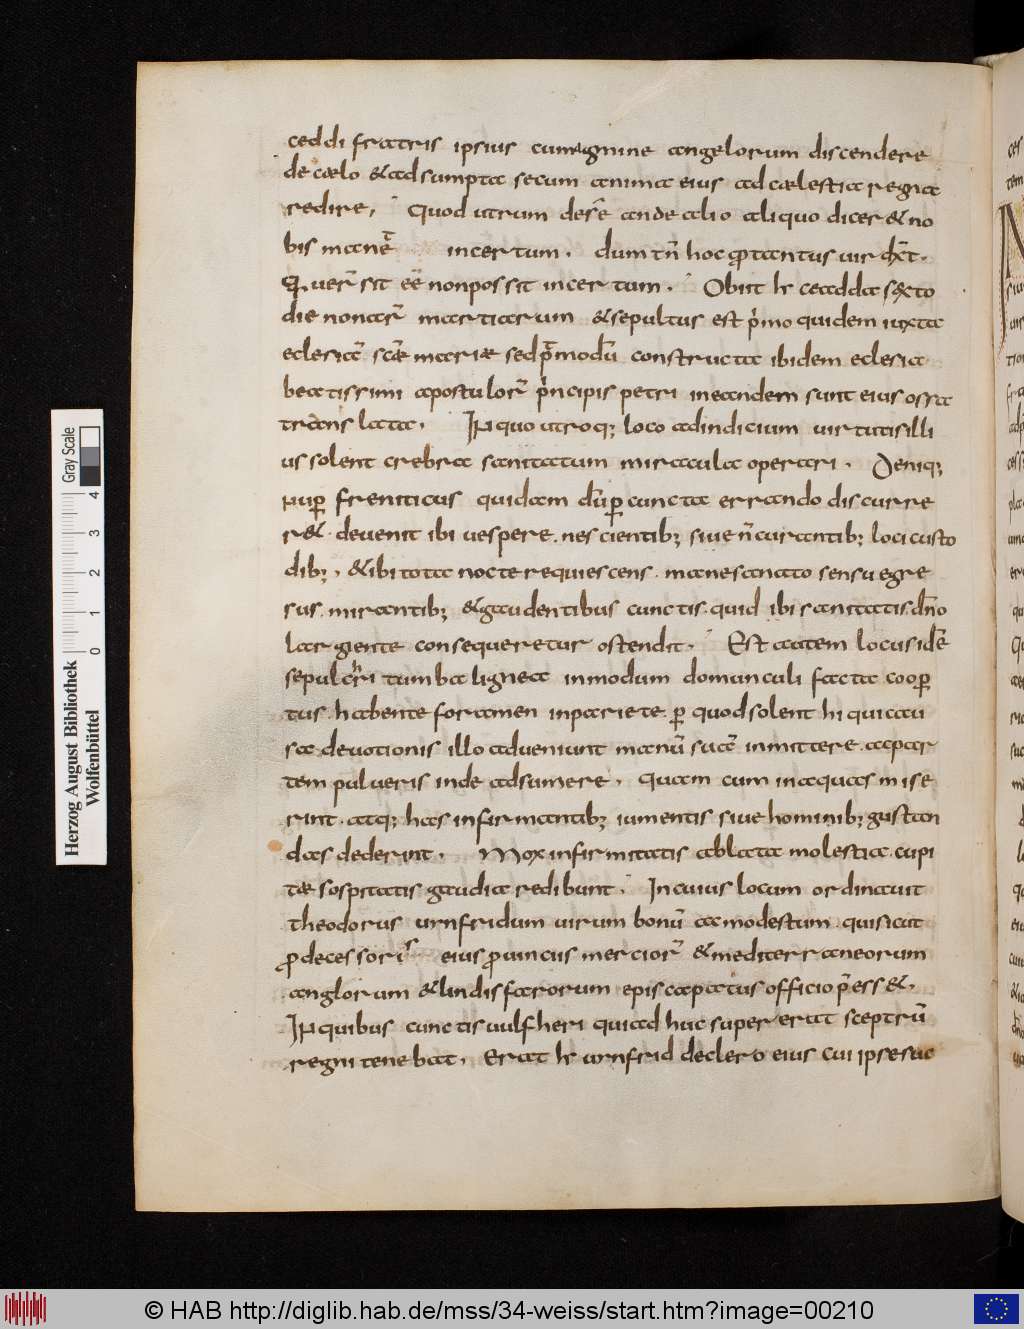 ceddi fratris ipsius cum agmine angelorum discendere
de cælo & adsumpta secum anima eius ad cælestia regna
redire, Quod utrum dese an de alio aliquo dicer& no
bis manet incertum. dum tn̄ hoc ꝓ tantus uir dx̄t.
Quer̄ sit ēē non possit incertum. Obiit h̅ ceadda sexto
die nonar̄ martiarum & sepultus est pͥmo quidem iuxta
eclesiā sc̄æ mariæ sed p̄modū constructa ibidem eclesia
beatissimi apostulor̄ pͥncipis petri in eandem sunt eius ossa
translata. In quo utroq; loco ad indicium uirtutis illi
us solent crebra sanitatum miracula operari. Deniq;
nuꝑ freniticus quidam dūꝑ cuncta errando discurre
r&. devenit ibi uespere. nescientib; siue n̄ curantib; loci custo
dib;. & ibi tota nocte requiescens. mane sanato sensu egre
sus. mirantib; & gaudentibus cunctis. quid ibi sanitatis dn̄o
largiente consequeretur ostendit. Est autem locus idē
sepulcri tumba lignea in modum domunculi facta cooꝑ
tus. habente foramen in pariete. ꝑ quod solent hi qui cau
sa devotionis illo adueniunt manū suā inmittere. ac par
tem pulueris inde adsumere. quam cum in aquas mise
rint. atq; has infirmantib; iumentis siue hominib; gustan
das dederint. Mox infirmitatis ablata molestia. cupi
tæ sospitatis gaudia redibunt. In cuius locum ordinauit
theodorus urnfridum uirum bonū ac modestum. qui sicut
ꝓdecessoris eius ꝓuinciis mercior̄ & mediterraneorum
anglorum & lindisfarorum episcapatus officio p̄ess&.
In quibus cunctis uulfheri qui ad huc super erat sceptrū
regni tenebat. Erat h̅ urnfrid de clero eius cui ipse suc
Gray Scale
0 1 2 3 4
Herzog August Bibliothek
Wolfenbüttel
© HAB http://diglib.hab.de/mss/34-weiss/start.htm?image=00210